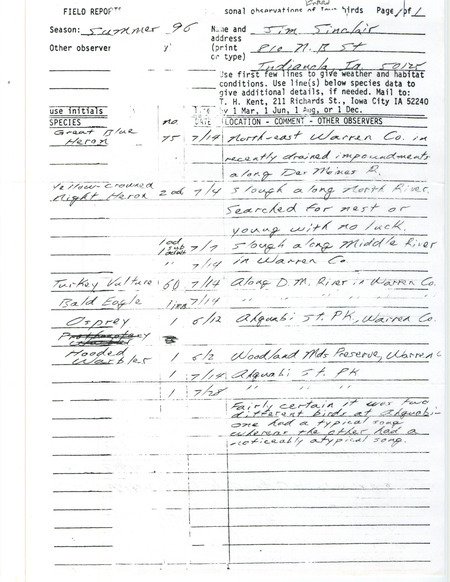 FIELD REPORTS sonal observations of Iowa birds Page 1 of 1
Season: Summer 96 Name and Jim Sinclair
address
Other observer (print 810 N. B St
or type) Indianola, Ia. 50125
Use first few lines to give weather and habitat
conditions. Use line(s) below species data to
give additional details, if needed. Mail to:
T. H. Kent, 211 Richards St., Iowa City IA 52240
use initials by 1 Mar, 1 Jun, 1 Aug, or 1 Dec.
SPECIES no. DATE LOCATION - COMMENT - OTHER OBSERVERS
Great Blue
Heron 75 7/14 North-east Warren Co. in
recently drained impoundments
along Des Moines R.
Yellow-crowned
Night Heron 2 ad. 7/4 slough along North River.
Searched for nest or
young with no luck.
1 ad
1 sub
adult 7/7 slough along Middle River
" 7/14 in Warren Co.
Turkey Vulture 60 7/14 Along D.M. River in Warren Co.
Bald Eagle 1 imm 7/14 " " " " "
Osprey 1 6/12 Ahquabi St. PK, Warren Co.
Hooded
Warbler 1 6/2 Woodland Mds Preserve, Warren C
1 7/14 Ahquabi St. PK
1 7/28 " " "
Fairly certain it was two
different birds at Ahquabi-
one had a typical song
whereas the other had a
noticeably atypical song.